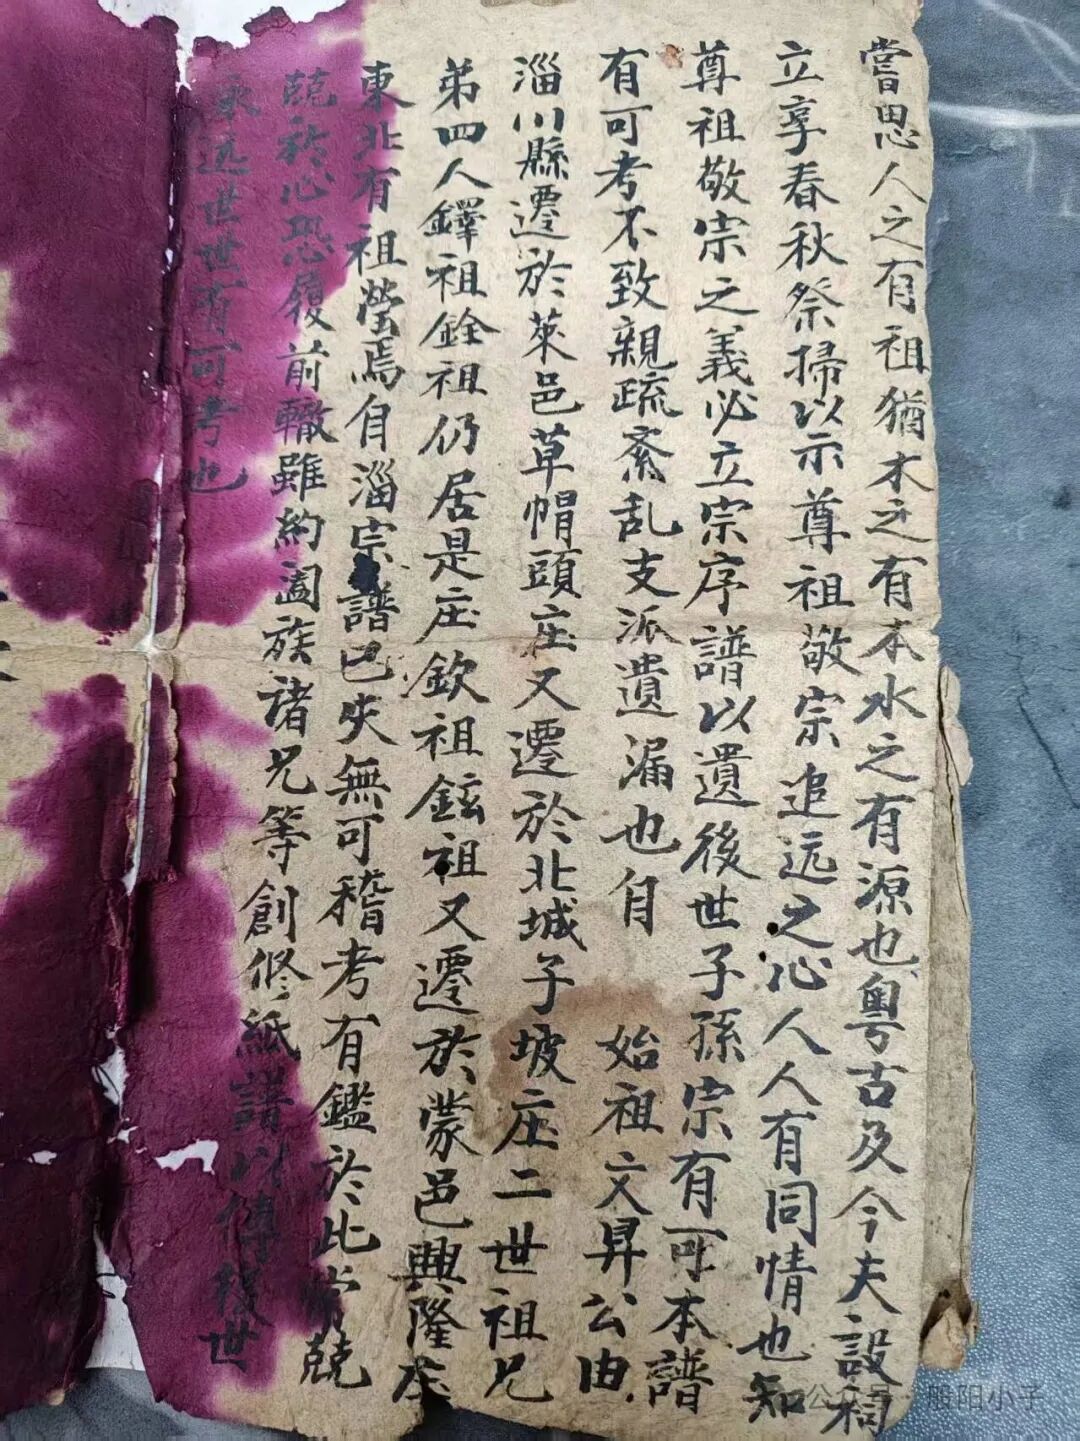 嘗思人之有祖猶木之有本水之有源也粵古及今夫設祠
立享春秋祭掃以示尊祖敬宗追远之心人人有同情也知
尊祖敬宗之義必立宗序譜以遺後世子孫宗有可本譜
有可考不致親疏紊乱支派遺漏也自 始祖文昇公由
淄川縣遷於萊邑草帽頭庄又遷於北城子坡庄二世祖兄
弟四人鐸祖銓祖仍居是庄欽祖鉉祖又遷於蒙邑興隆庄
東北有祖塋焉自淄宗譜已失無可稽考有鑑於此常兢
兢於心恐履前轍雖約闔族諸兄等創修紙譜以傳後世
永远世世有可考也
公众号·般阳小子